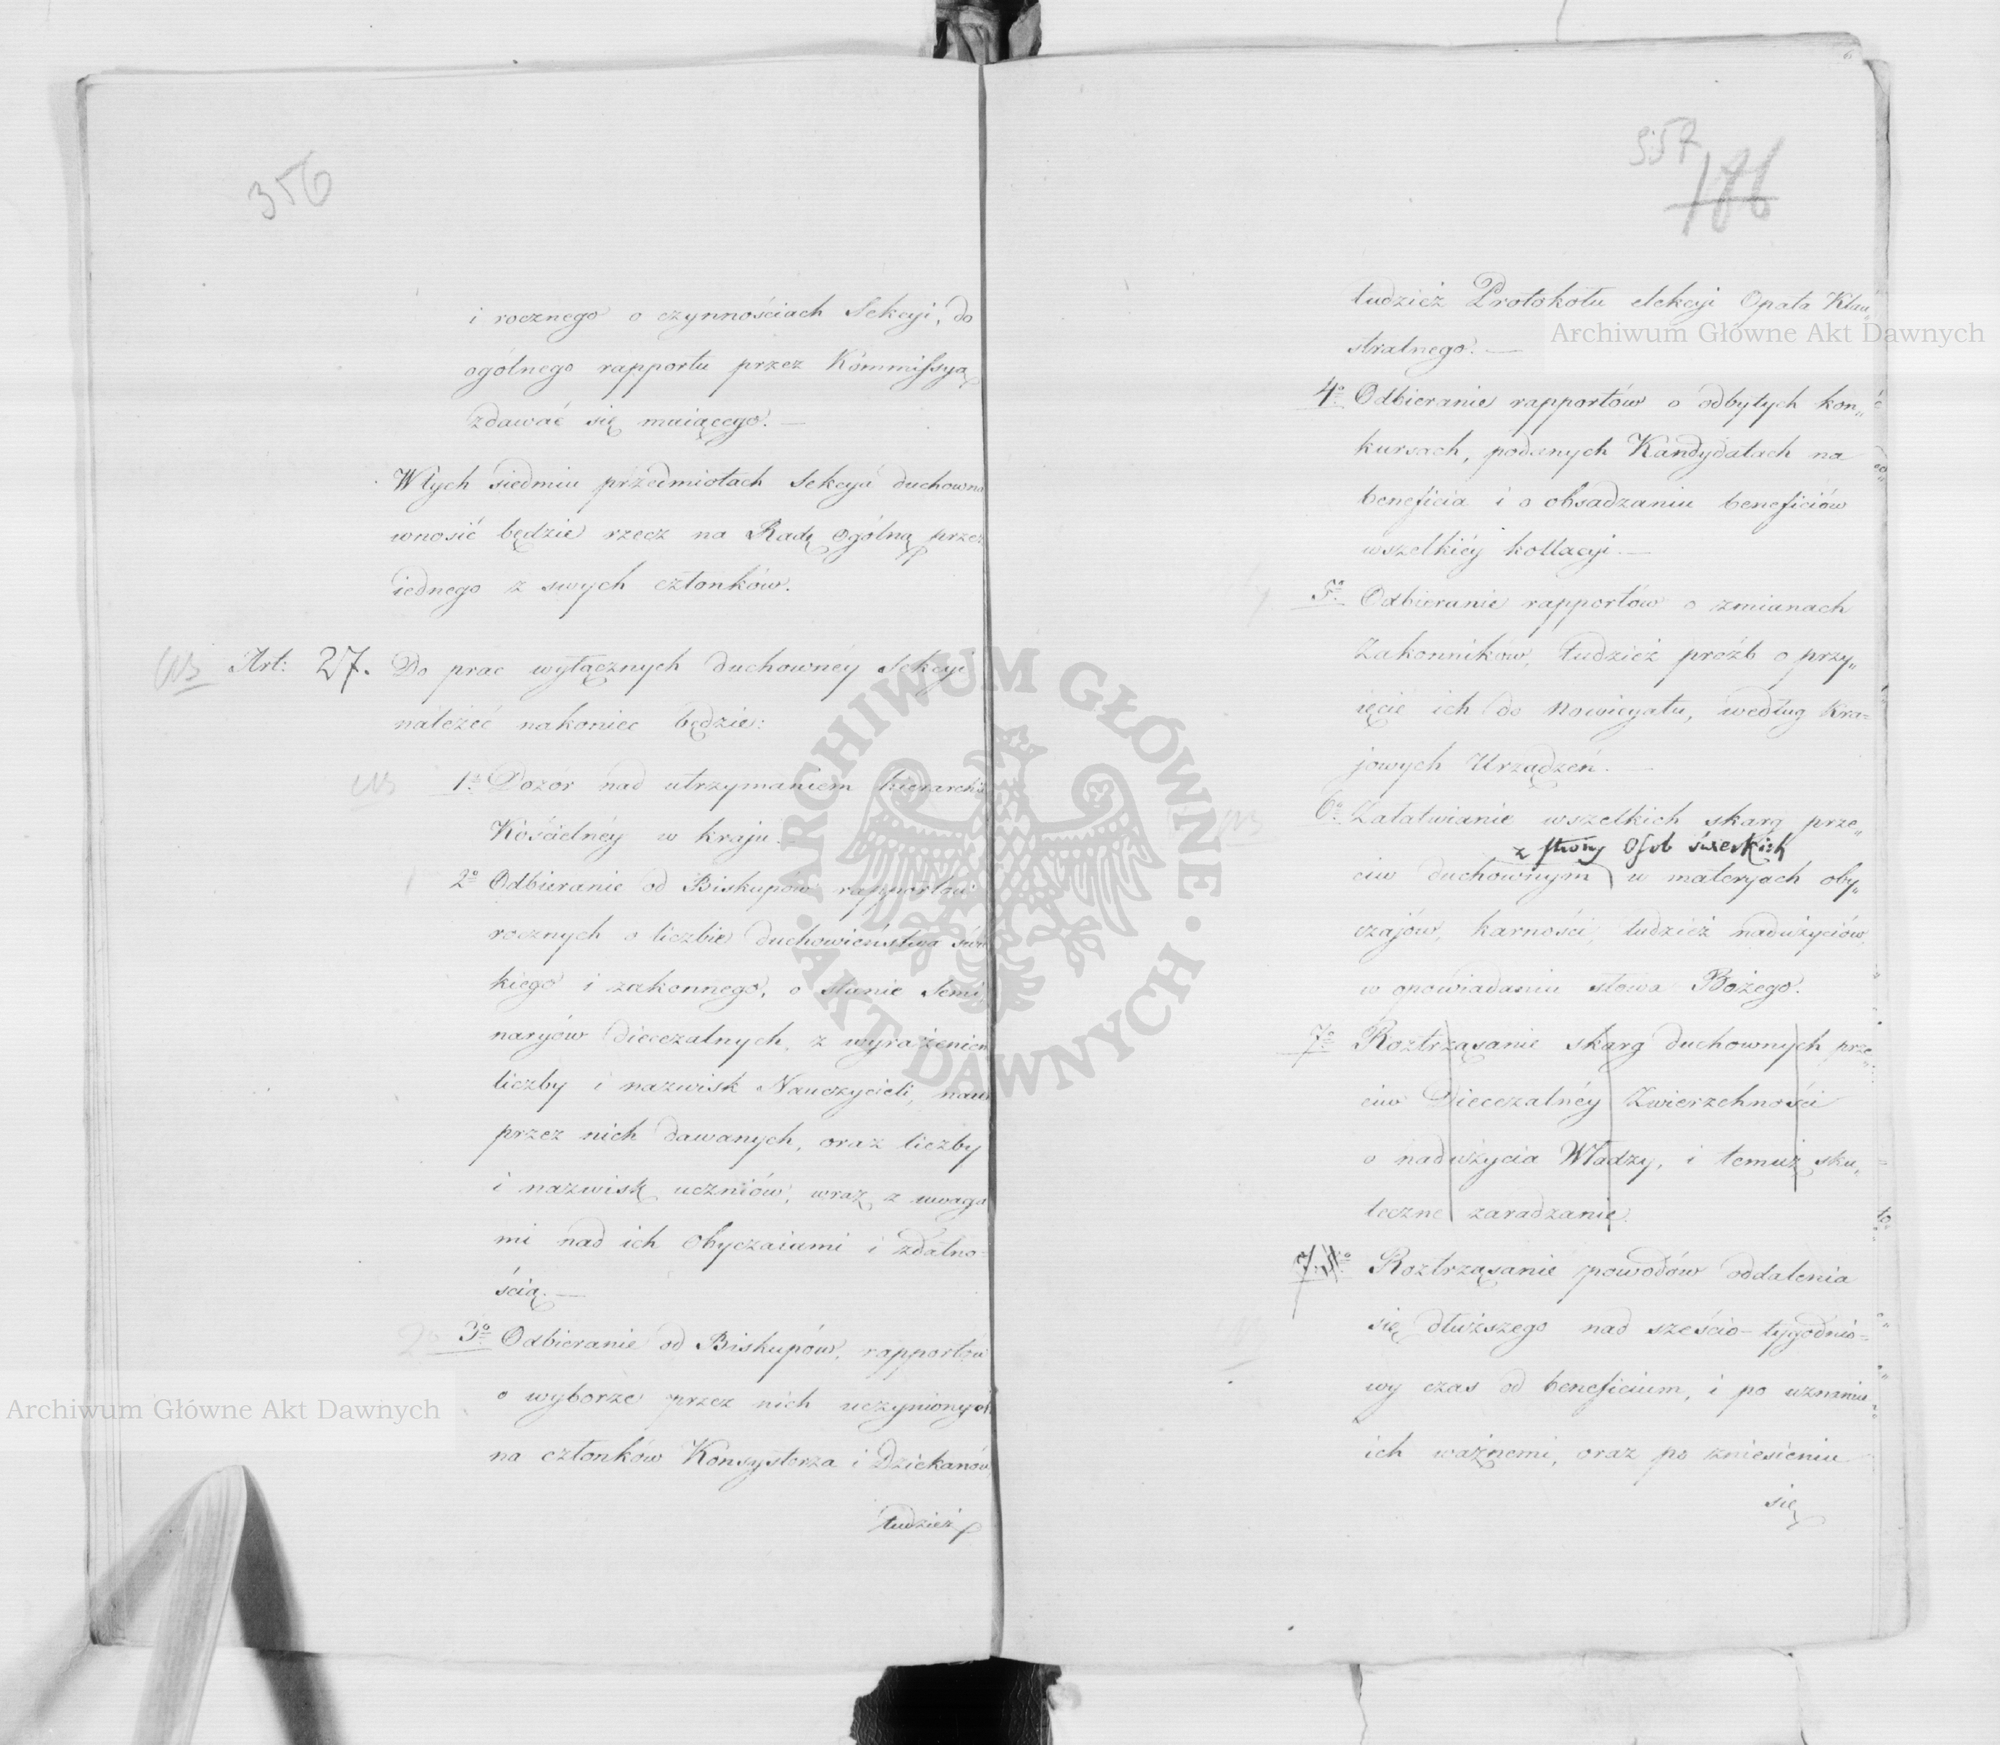 356
i rocznego o czynnościach Sekcyi, do
ogólnego rapportu przez Kommissyą
zdawać się maiącego. —
W tych siedmiu przedmiotach Sekcya duchowna
wnosić będzie rzecz na Radę ogólną przez
iednego z swych członków.
Art: 27. Do prac wyłącznych duchownéy Sekcyi
należeć nakoniec będzie:
1º Dozór nad utrzymaniem hierarchii
Kościelnéy w kraju.
2º Odbieranie od Biskupów rapportów
rocznych o liczbie duchowieństwa świec
kiego i zakonnego, o stanie Semi,
naryów diecezalnych, z wyrażeniem
liczby i nazwisk Nauczycieli, nauk
przez nich dawanych, oraz liczby
i nazwisk uczniów, wraz z uwaga
mi nad ich obyczaiami i zdatno=
ścią. —
3º Odbieranie od Biskupów, rapportów
o wyborze przez nich uczynionych
na członków Konsystorza i Dziekanów
tudzież
357
186
tudzież Protokołu elekcyi Opata Klau„
stralnego. —
4º Odbieranie rapportów o odbytych kon„
kursach, podanych Kandydatach na
beneficia i o obsadzaniu beneficiów
wszelkiéy kollacyi. —
5º Odbieranie rapportów o zmianach
Zakonników, tudzież próźb o przy„
ięcie ich do Nowicyatu, według Kra=
jowych Urządzeń. —
6º Załatwianie wszelkich skarg prze„
z strony Osób świeckich
ciw duchownym w materyach oby„
czajów, karności, tudzież nadużyciów
w opowiadaniu słowa Bożego.
7º Roztrząsanie skarg duchownych prze„
ciw Diecezalnéy Zwierzchności
o nadużycia Władzy, i temuż sku„
teczne zaradzanie.
7. Roztrząsanie powodów oddalenia
się dłuższego nad sześcio-tygodnio=
wy czas od beneficium, i po uznaniu
ich ważnemi, oraz po zniesieniu
się
Archiwum Główne Akt Dawnych
Archiwum Główne Akt Dawnych
ARCHIWUM GŁÓWNE · AKT DAWNYCH ·